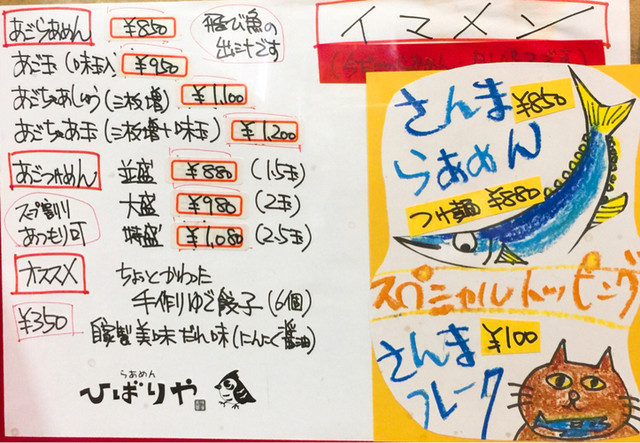 あごらあめん ¥850
飛び魚の
出汁です
あご玉(味玉入) ¥950
あごちゃあしゅう(三枚増) ¥1,100
あごちゃあ玉(三枚増+味玉) ¥1,200
あごつけめん 並盛 ¥880 (1.5玉)
大盛 ¥980 (2玉)
特盛 ¥1,080 (2.5玉)
スープ割り
あつもり可
オススメ
ちょっとかわった
手作りゆで餃子(6個)
¥350
自家製美味だれ味(にんにく醤油)
らあめん
ひばりや
イマメン
さんま ¥850
らあめん
つけ麺 ¥880
スペシャルトッピング
さんま ¥100
フレーク